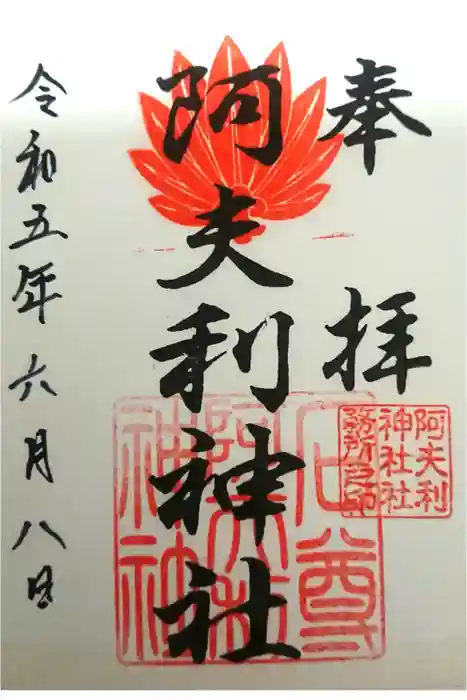 奉拝
阿夫利神社
令和五年六月八日
阿夫利
神社社
務所之印